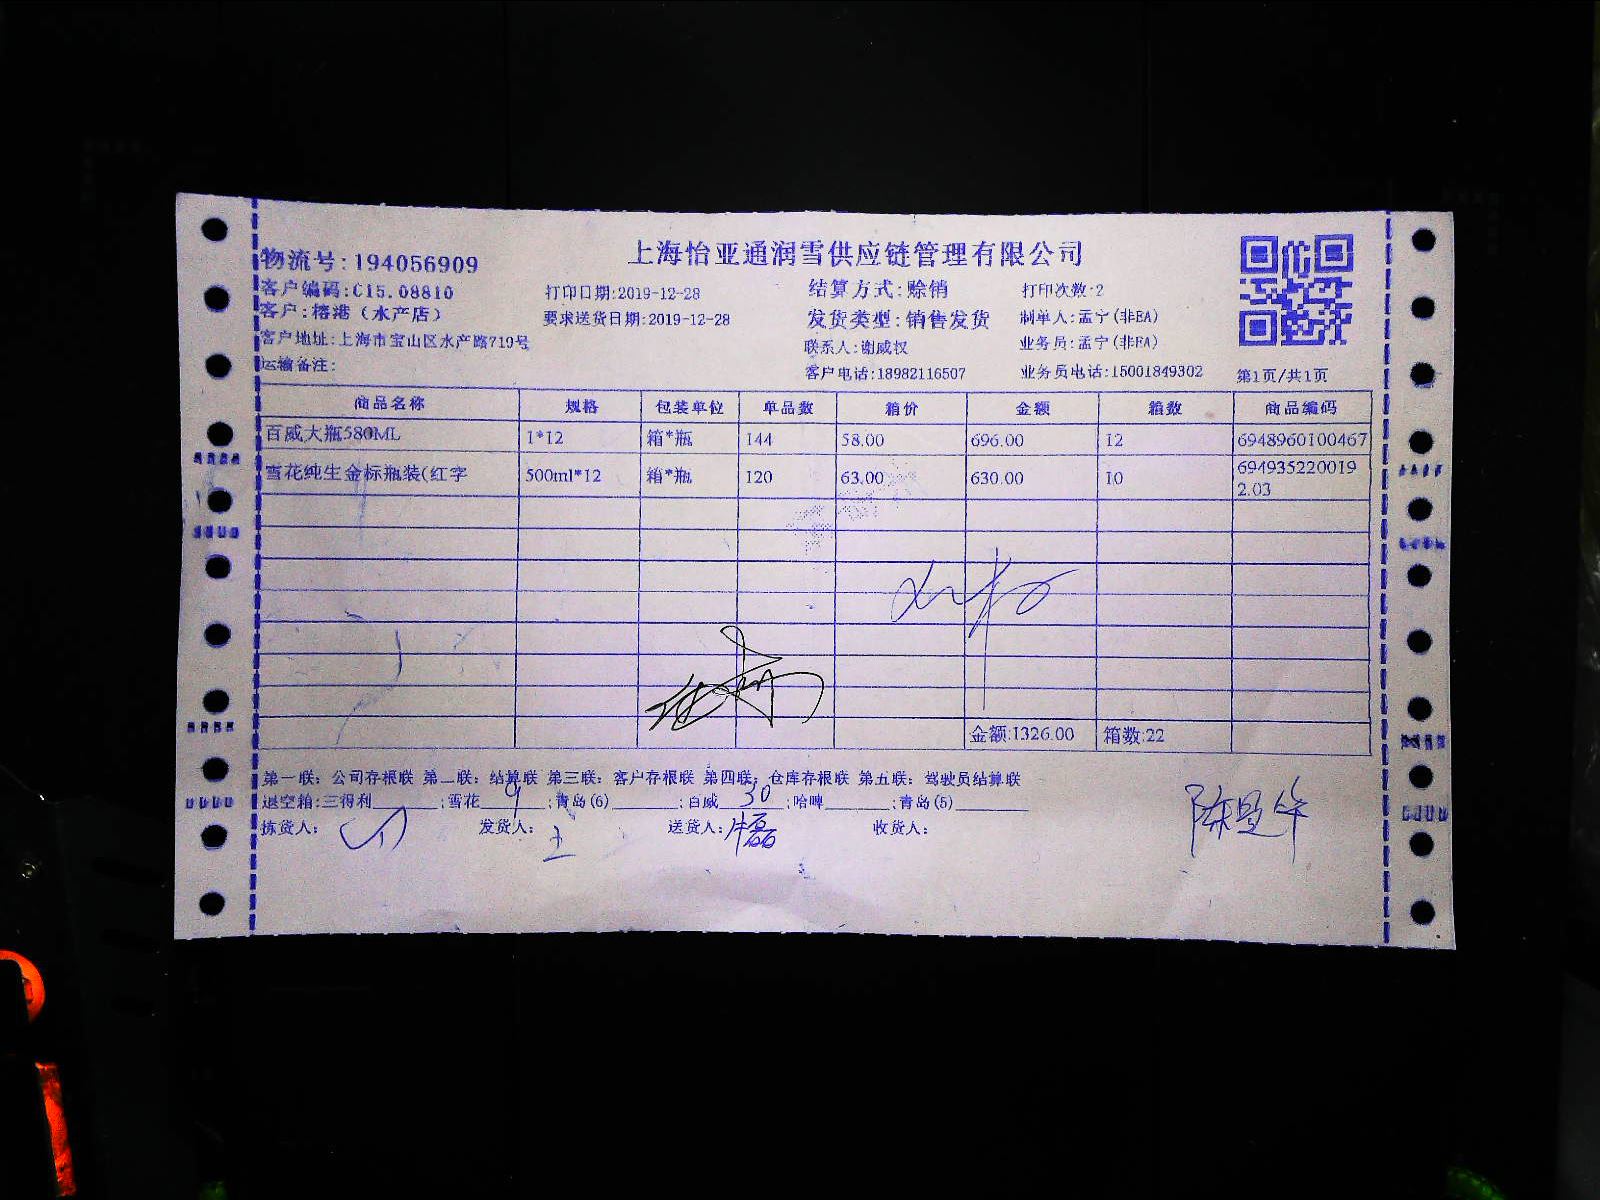 上海怡亚通润雪供应链管理有限公司
物流号:194056909
客户编码:C15.08810 打印日期:2019-12-28 结算方式:赊销 打印次数:2
客户:榕港（水产店） 要求送货日期:2019-12-28 发货类型:销售发货 制单人:孟宁(非EA)
客户地址:上海市宝山区水产路719号 联系人:谢威权 业务员:孟宁(非EA)
运输备注: 客户电话:18982116507 业务员电话:15001849302 第1页/共1页
商品名称 规格 包装单位 单品数 箱价 金额 箱数 商品编码
百威大瓶580ML 1*12 箱*瓶 144 58.00 696.00 12 6948960100467
雪花纯生金标瓶装(红字 500ml*12 箱*瓶 120 63.00 630.00 10 694935220019
2.03
金额:1326.00 箱数:22
第一联：公司存根联 第二联：结算联 第三联：客户存根联 第四联：仓库存根联 第五联：驾驶员结算联
退空箱:三得利______;雪花 9 ;青岛(6)______;百威 30 ;哈啤______;青岛(5)______
拣货人: 发货人: 王 送货人: 牛磊 收货人: